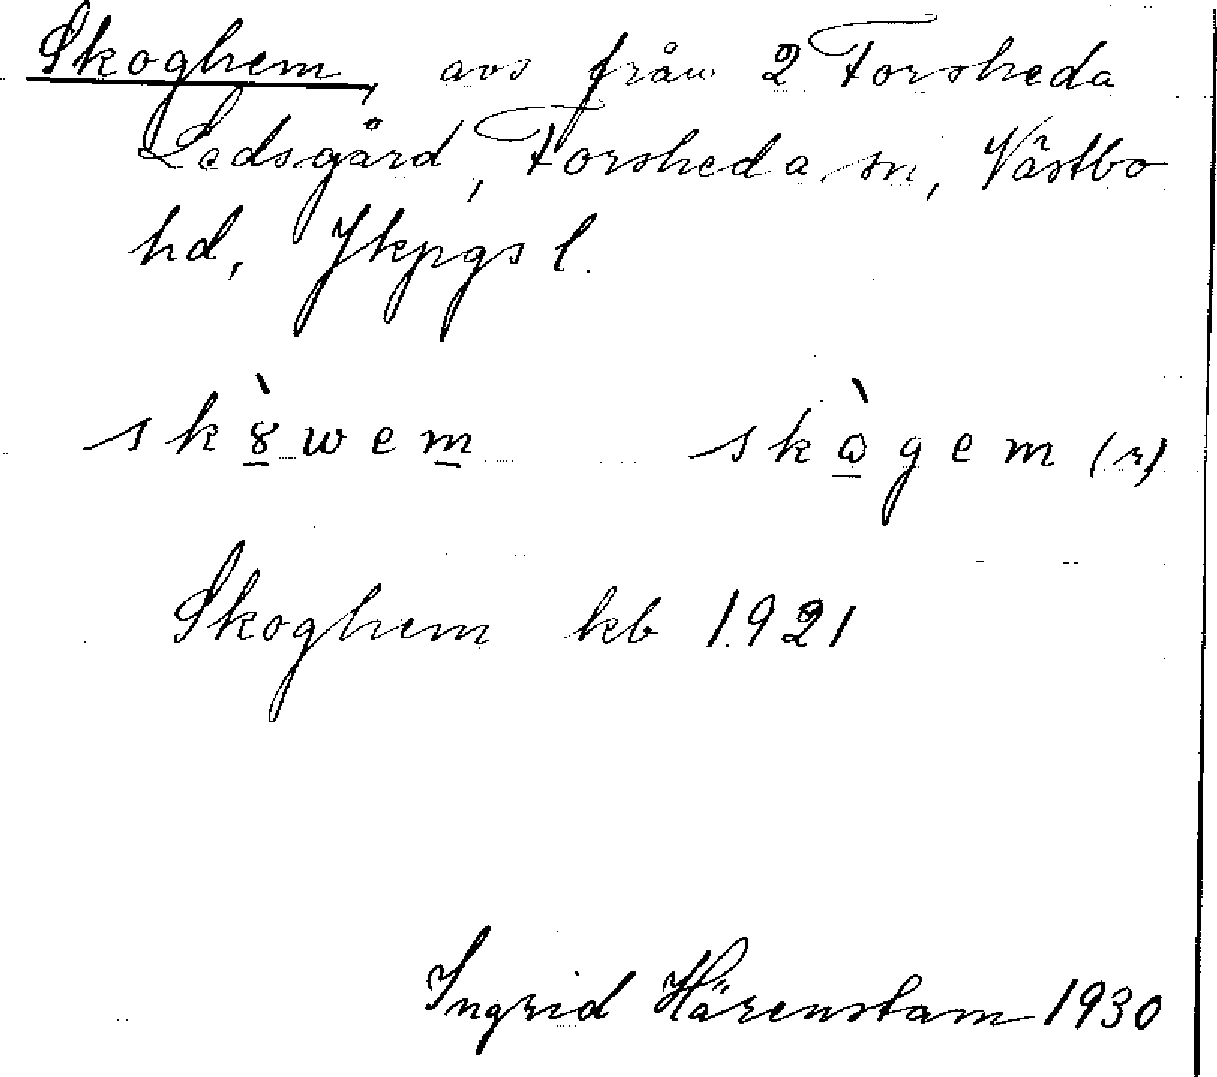 Skoghem, avs från 2 Forsheda
Ledsgård, Forsheda sn, Västbo
hd, Jkpgs l.
skȣ̀wem skàgem (r)
Skoghem kb 1921
Ingrid Härenstam 1930